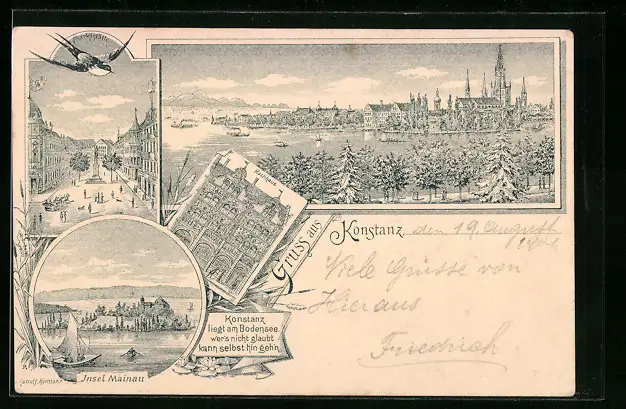 Marktstätte
Rathaus
Gruss aus
Konstanz, den 19. August
Viele Grüsse von
Hieraus
Friedrich
Konstanz
liegt am Bodensee.
wer's nicht glaubt
kann selbst hin geh'n.
Insel Mainau